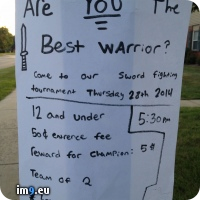 Are YOU The
Best warrior?
Come to our Sword fighting
tournament Thursday 28th 2014
12 and under
5:30pm
50¢ enrence fee
Reward for Champion: 5$
Team of 2
im9.eu